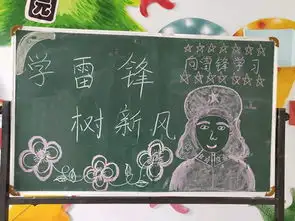 学雷锋
树新风
向雷锋学习